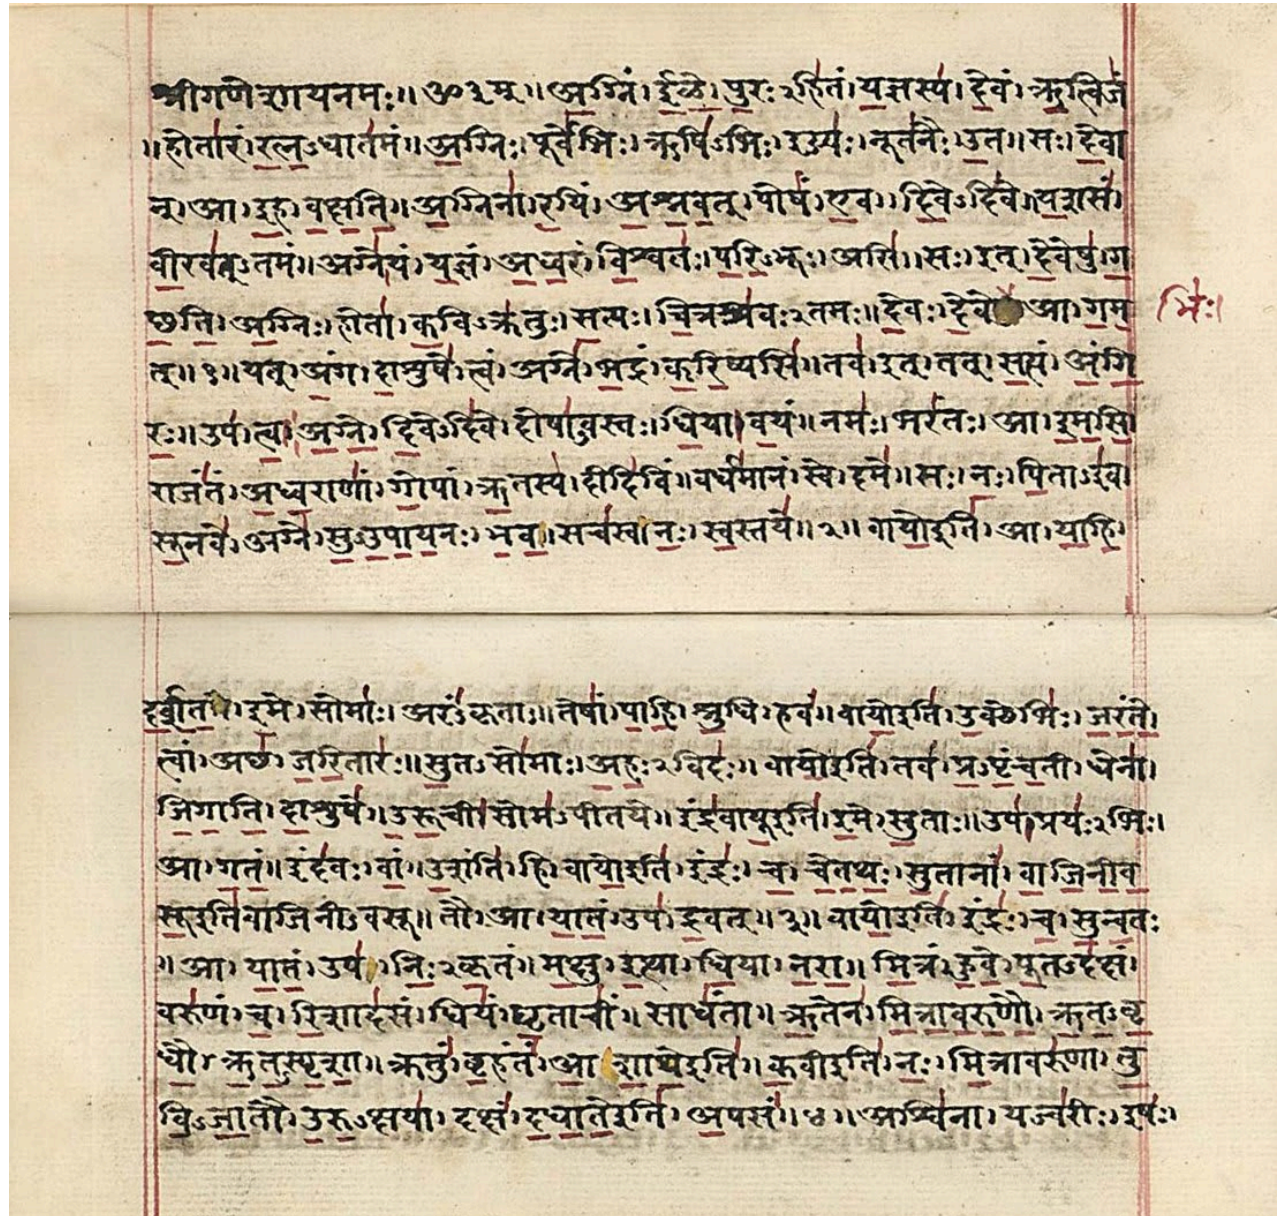 श्रीगणेशायनमः॥ॐ३म्॥अग्निं।ईळे।पुरःऽहितं।यज्ञस्य।देवं।ऋत्विजं
॥होतारं।रत्नऽधातमं॥अग्निः।पूर्वेभिः।ऋषिऽभिः।ईड्यः।नूतनैः।उत॥सः।देवा
न्।आ।इह।वक्षति॥अग्निना।रयिं।अश्नवत्।पोषं।एव।दिवेऽदिवे॥यशसं।
वीरवत्ऽतमं॥अग्ने।यं।यज्ञं।अध्वरं।विश्वतः।परिऽभूः।असि॥सः।इत्।देवेषु।ग
छति।अग्निः।होता।कविऽक्रतुः।सत्यः।चित्रश्रवःऽतमः॥देवः।देवे आ।गम भिः।
त्॥१॥यत्।अंग।दाशुषे।त्वं।अग्ने।भद्रं।करिष्यसि॥तव।इत्।तत्।सत्यं।अंगि
रः॥उप।त्वा।अग्ने।दिवेऽदिवे।दोषाऽवस्तः।धिया।वयं॥नमः।भरंतः।आ।इमसि।
राजंतं।अध्वराणां।गोपां।ऋतस्य।दीदिविं॥वर्धमानं।स्वे।दमे॥सः।नः।पिताऽइव।
सूनवे।अग्ने।सुऽउपायनः।भव॥सचस्वानः।स्वस्तये॥२॥वायोइति।आ।याहि।
दर्शत।इमे।सोमाः।अरंऽकृताः॥तेषां।पाहि।श्रुधि।हवं॥वायोइति।उक्थेभिः।जरंते।
त्वां।अछ।जरितारः॥सुतऽसोमाः।अहःऽविदः॥वायोइति।तव।प्रऽपृंचती।धेना।
जिगाति।दाशुषे॥उरूची।सोमऽपीतये॥इंद्रवायूइति।इमे।सुताः॥उप।प्रयःऽभिः।
आ।गतं॥इंदवः।वां॥उशंति।हि।वायोइति।इंद्रः।च।चेतथः।सुतानां।वाजिनीव
सूइतिवाजिनीऽवसू॥तौ।आ।यातं।उप।द्रवत्॥३॥वायोइति।इंद्रः।च।सुन्वतः
।आ।यातं।उप।निःऽकृतं॥मक्षु।इत्था।धिया।नरा॥मित्रं।हुवे।पूतऽदक्षं।
वरुणं।च।रिशादसं।धियं।घृताचीं॥साधंता॥ऋतेन।मित्रावरुणौ।ऋतऽवृ
धौ।ऋतऽस्पृशा॥क्रतुं।बृहंतं।आ।शाथेइति॥कवीइति।नः।मित्रावरुणा।तु
विऽजातौ।उरुऽक्षया।दक्षं।दधातेइति।अपसं॥४॥अश्विना।यज्वरीः।इषः।